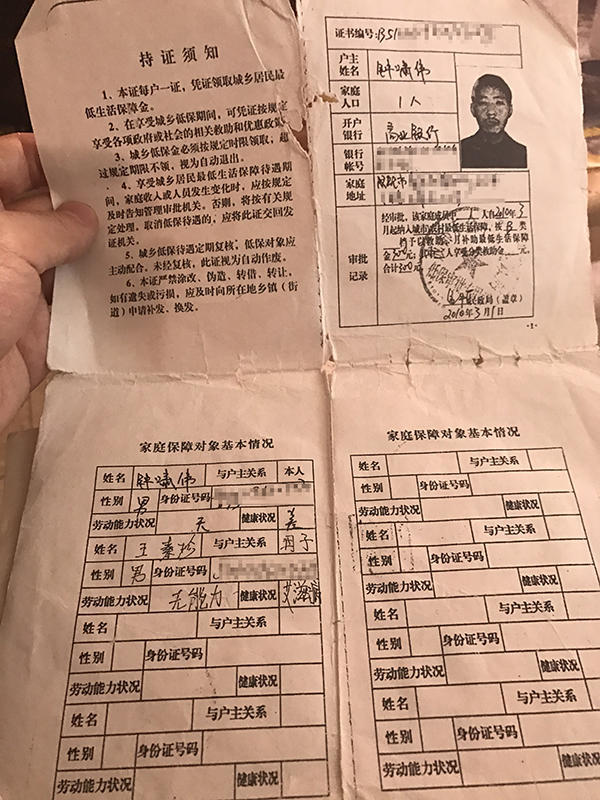 持证须知
1、本证每户一证，凭证领取城乡居民最
低生活保障金。
2、在享受城乡低保期间，可凭证按规定
享受各项政府或社会的相关救助和优惠政策
3、城乡低保金必须按规定时限领取，超
过规定期限不领，视为自动退出。
4、享受城乡居民最低生活保障待遇期
间，家庭收入或人员发生变化时，应按规定
及时告知管理审批机关。否则，将按有关规
定处理，取消低保待遇的，应将此证交回发
证机关。
5、城乡低保待遇定期复核，低保对象应
主动配合。未经复核，此证视为自动作废。
6、本证严禁涂改、伪造、转借、转让，
如有遗失或污损，应及时向所在地乡镇（街
道）申请补发、换发。
证书编号：B51
户主
姓名
家庭
人口 1人
开户
银行 商业银行
银行
帐号
家庭
地址 市
审批
记录
经审批，该家庭 人自2010年3
月起纳入城市 最低生活保障，按B类
月补助最低生活保障
金 元， 人享受分类救助金 元，
合计 元。
民政局（盖章）
2010年3月1日
-1-
家庭保障对象基本情况
姓名 与户主关系 本人
性别 男 身份证号码
劳动能力状况 无 健康状况 差
姓名 王秦松 与户主关系
性别 男 身份证号码
劳动能力状况 无能力 健康状况 艾滋病
姓名 与户主关系
性别 身份证号码
劳动能力状况 健康状况
姓名 与户主关系
性别 身份证号码
劳动能力状况 健康状况
家庭保障对象基本情况
姓名 与户主关系
性别 身份证号码
劳动能力状况 健康状况
姓名 与户主关系
性别 身份证号码
劳动能力状况 健康状况
姓名 与户主关系
性别 身份证号码
劳动能力状况 健康状况
姓名 与户主关系
性别 身份证号码
劳动能力状况 健康状况